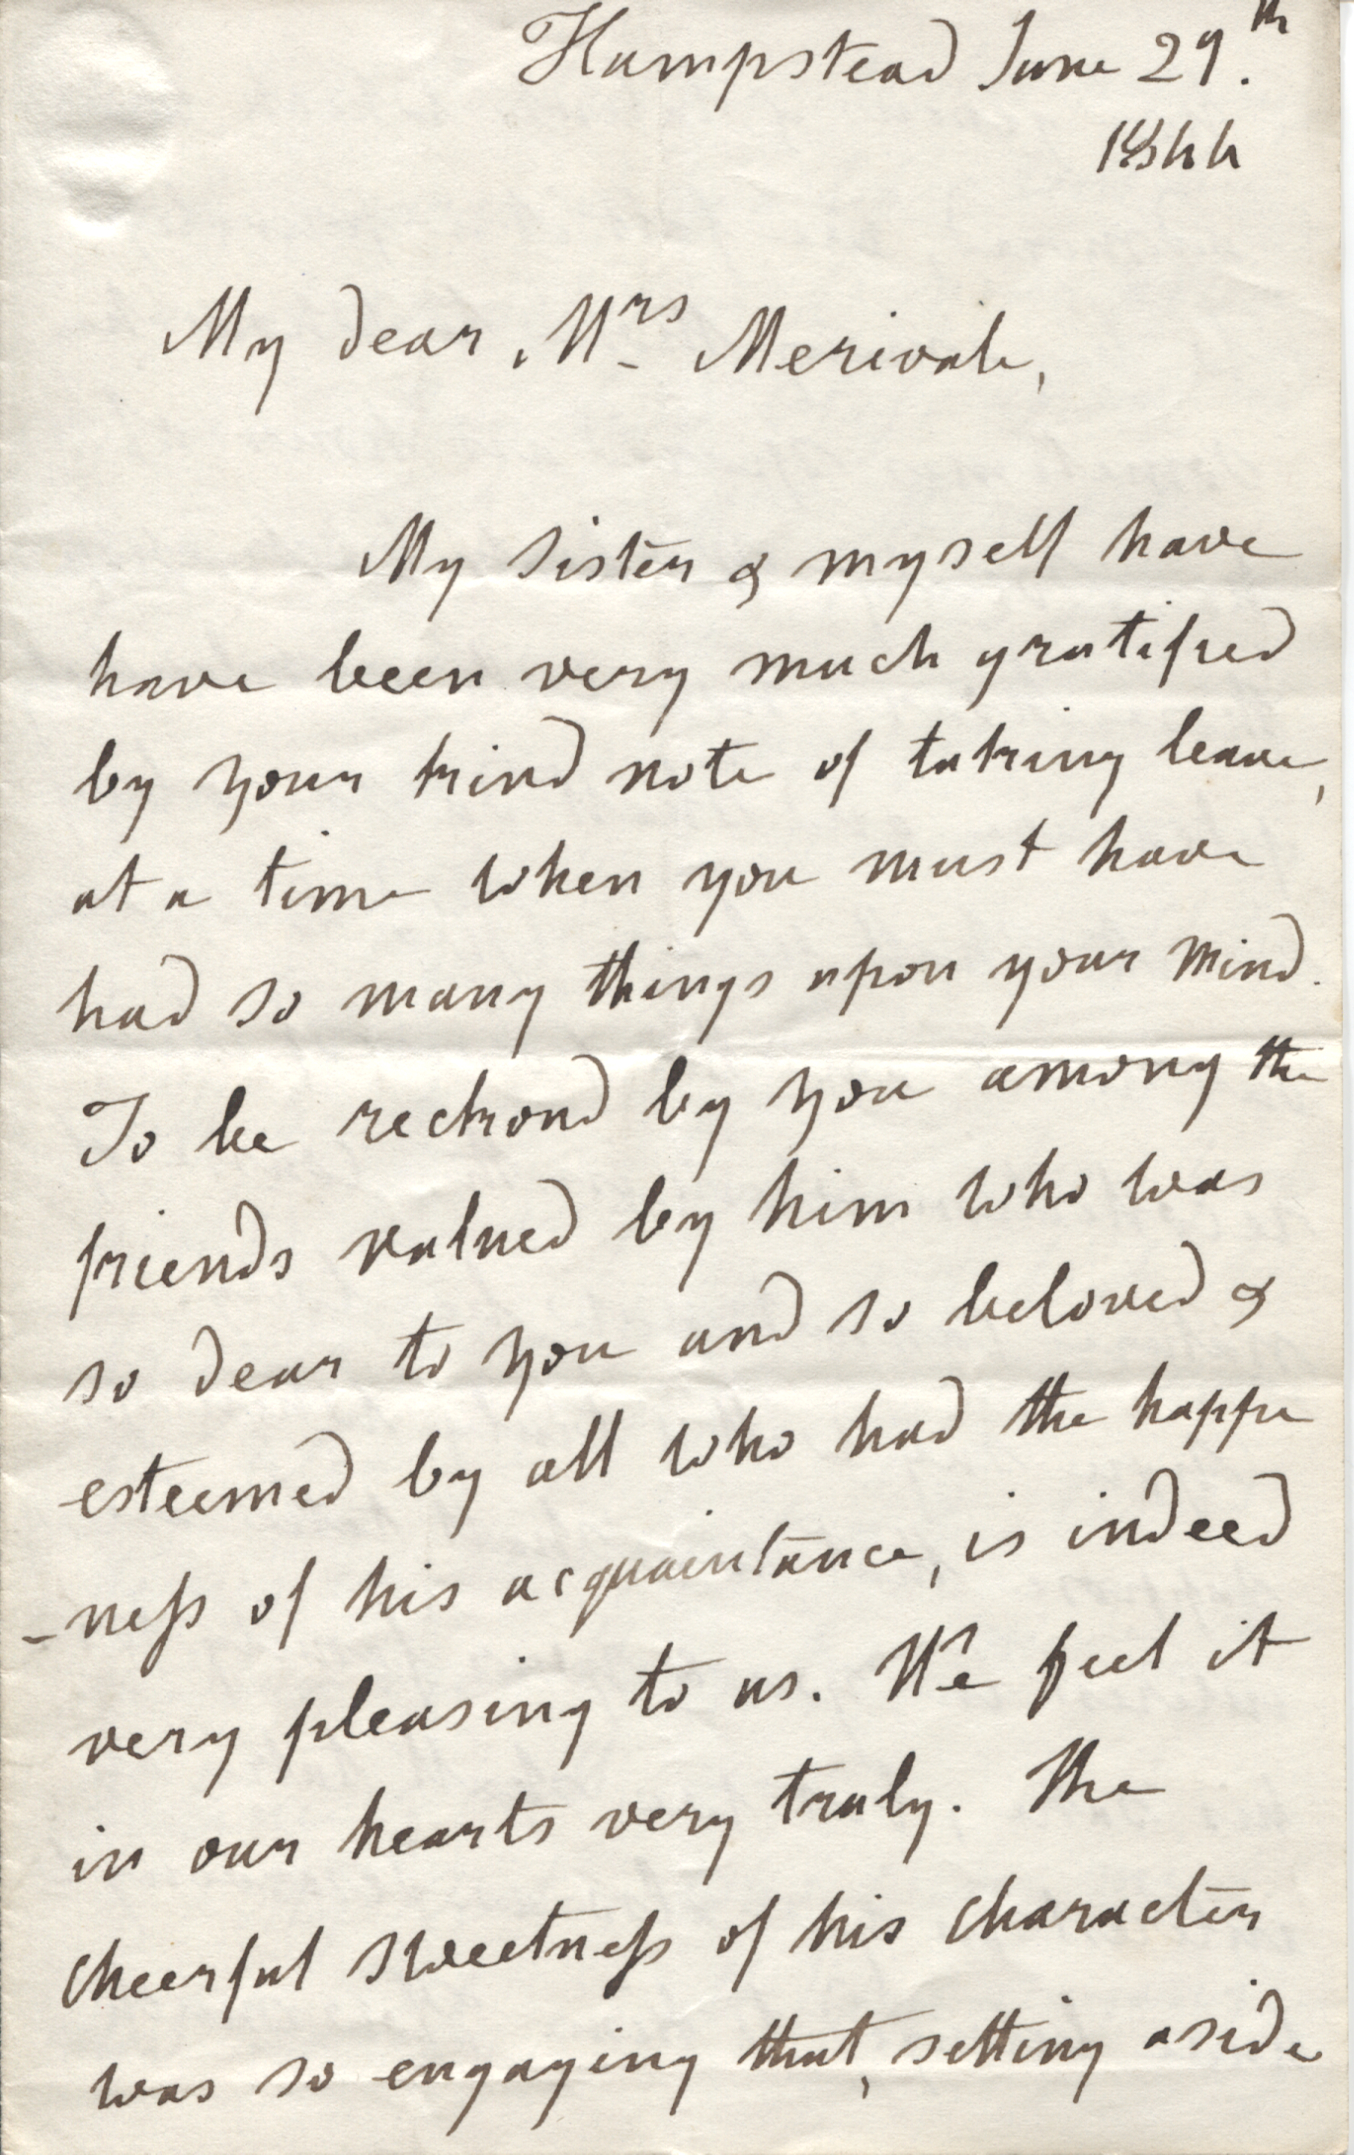 Hampstead June 29th.
1844
My dear Mrs Merivale,
My sister & myself have
have been very much gratified
by your kind note of taking leave,
at a time when you must have
had so many things upon your mind.
To be reckond by you among the
friends valued by him who was
so dear to you and so beloved &
esteemed by all who had the happi
-ness of his acquaintance, is indeed
very pleasing to us. We feel it
in our hearts very truly. The
cheerful sweetness of his character
was so engaging that, setting aside